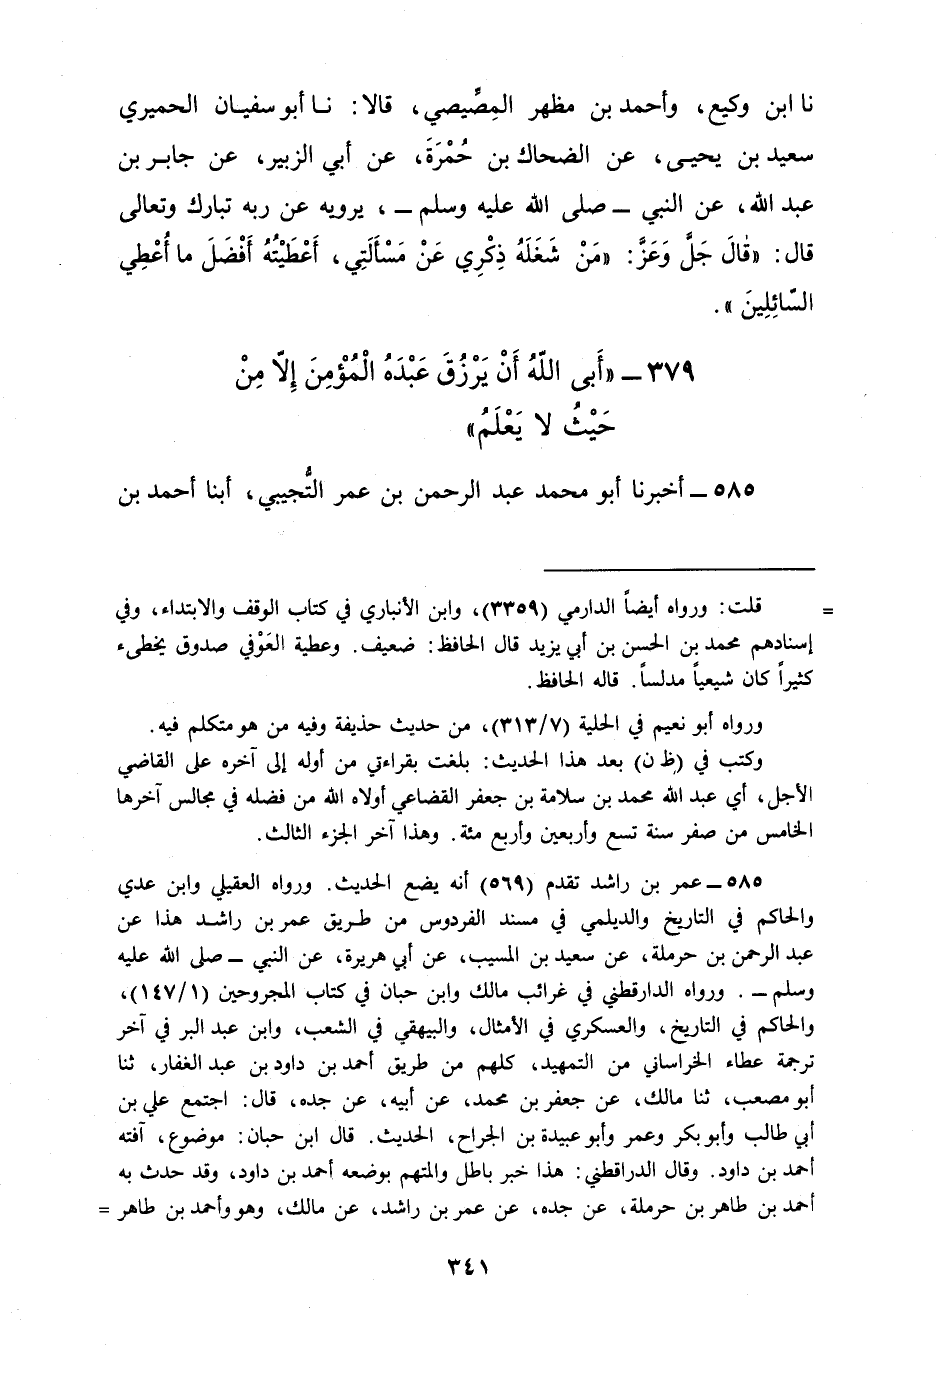 نا ابن وكيع، وأحمد بن مظهر المِصِّيصي، قالا: نـا أبو سفيـان الحميري
سعيد بن يحيـى، عن الضحاك بن حُمْرَةَ، عن أبي الزبير، عن جابـر بن
عبد الله، عن النبي ـ صلى الله عليه وسلم ـ، يرويه عن ربه تبارك وتعالى
قال: «قٰالَ جَلَّ وَعَزَّ: «مَنْ شَغَلَهُ ذِكْرِي عَنْ مَسْأَلَتِي، أَعْطَيْتُهُ أَفْضَلَ ما أُعْطِي
السّائِلِينَ».
٣٧٩ ـ «أَبى اللّهُ أَنْ يَرْزُقَ عَبْدَهُ الْمُؤْمِنَ إِلاّ مِنْ
حَيْثُ لا يَعْلَمُ»
٥٨٥ ـ أخبرنا أبو محمد عبد الرحمن بن عمر التُّجيبي، أبنا أحمد بن
= قلت: ورواه أيضاً الدارمي (٣٣٥٩)، وابن الأنباري في كتاب الوقف والابتداء، وفي
إسنادهم محمد بن الحسن بن أبي يزيد قال الحافظ: ضعيف. وعطية العَوْفي صدوق يخطىء
كثيراً كان شيعياً مدلساً. قاله الحافظ.
ورواه أبو نعيم في الحلية (٣١٣/٧)، من حديث حذيفة وفيه من هو متكلم فيه.
وكتب في (ظ ن) بعد هذا الحديث: بلغت بقراءتي من أوله إلى آخره على القاضي
الأجل، أي عبد الله محمد بن سلامة بن جعفر القضاعي أولاه الله من فضله في مجالس آخرها
الخامس من صفر سنة تسع وأربعين وأربع مئة. وهذا آخر الجزء الثالث.
٥٨٥ ـ عمر بن راشد تقدم (٥٦٩) أنه يضع الحديث. ورواه العقيلي وابن عدي
والحاكم في التاريخ والديلمي في مسند الفردوس من طـريق عمر بن راشـد هذا عن
عبد الرحمن بن حرملة، عن سعيد بن المسيب، عن أبي هريرة، عن النبي ـ صلى الله عليه
وسلم ـ. ورواه الدارقطني في غرائب مالك وابن حبان في كتاب المجروحين (١٤٧/١)،
والحاكم في التاريخ، والعسكري في الأمثال، والبيهقي في الشعب، وابن عبد البر في آخر
ترجمة عطاء الخراساني من التمهيد، كلهم من طريق أحمد بن داود بن عبد الغفار، ثنا
أبو مصعب، ثنا مالك، عن جعفر بن محمد، عن أبيه، عن جده، قال: اجتمع علي بن
أبي طالب وأبو بكر وعمر وأبو عبيدة بن الجراح، الحديث. قال ابن حبان: موضوع، آفته
أحمد بن داود. وقال الدراقطني: هذا خبر باطل والمتهم بوضعه أحمد بن داود، وقد حدث به
أحمد بن طاهر بن حرملة، عن جده، عن عمر بن راشد، عن مالك، وهو وأحمد بن طاهر =
٣٤١